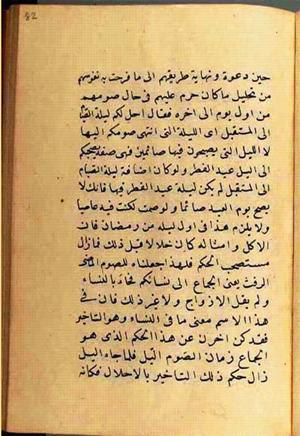 82
حين دعوة ونهاية طريقهم الى ما فرحت به نفوسهم
من تحليل ما كان حرم عليهم في حال صومهم
من اول يوم الى اخره فقال احل لكم ليلة القيام
الى المستقبل اى الليلة التى انتهى صومكم اليها
لا الليل التى يصبحون فيها صائمين فهى صفة يصحبكم
الى ليل عيد الفطر ولو كان اضافة ليلة القيام
الى المستقبل لم يكن ليلة عيد الفطر فيها فانك لا
يصح يوم العيد صائما ولو صمت لكنت فيه عاصيا
ولا يلزم هذا فى اول ليله من رمضان فان
الاكل وامثاله كان حلالا قبل ذلك فما زال
مستصحب الحكم فلهذا جعلناه للصوم الماضى
الرفث يعنى الجماع الى نسائكم فجاء بالنساء
ولم يقل الازواج ولا غير ذلك فان فى
هذا الاسم معنى ما فى النساء وهو التاخير
فقد كن اخرن عن هذا الحكم الذى هو
الجماع زمان الصوم الى الليل فلما جاء الليل
زال حكم ذلك التاخير بالاحلال فكانه